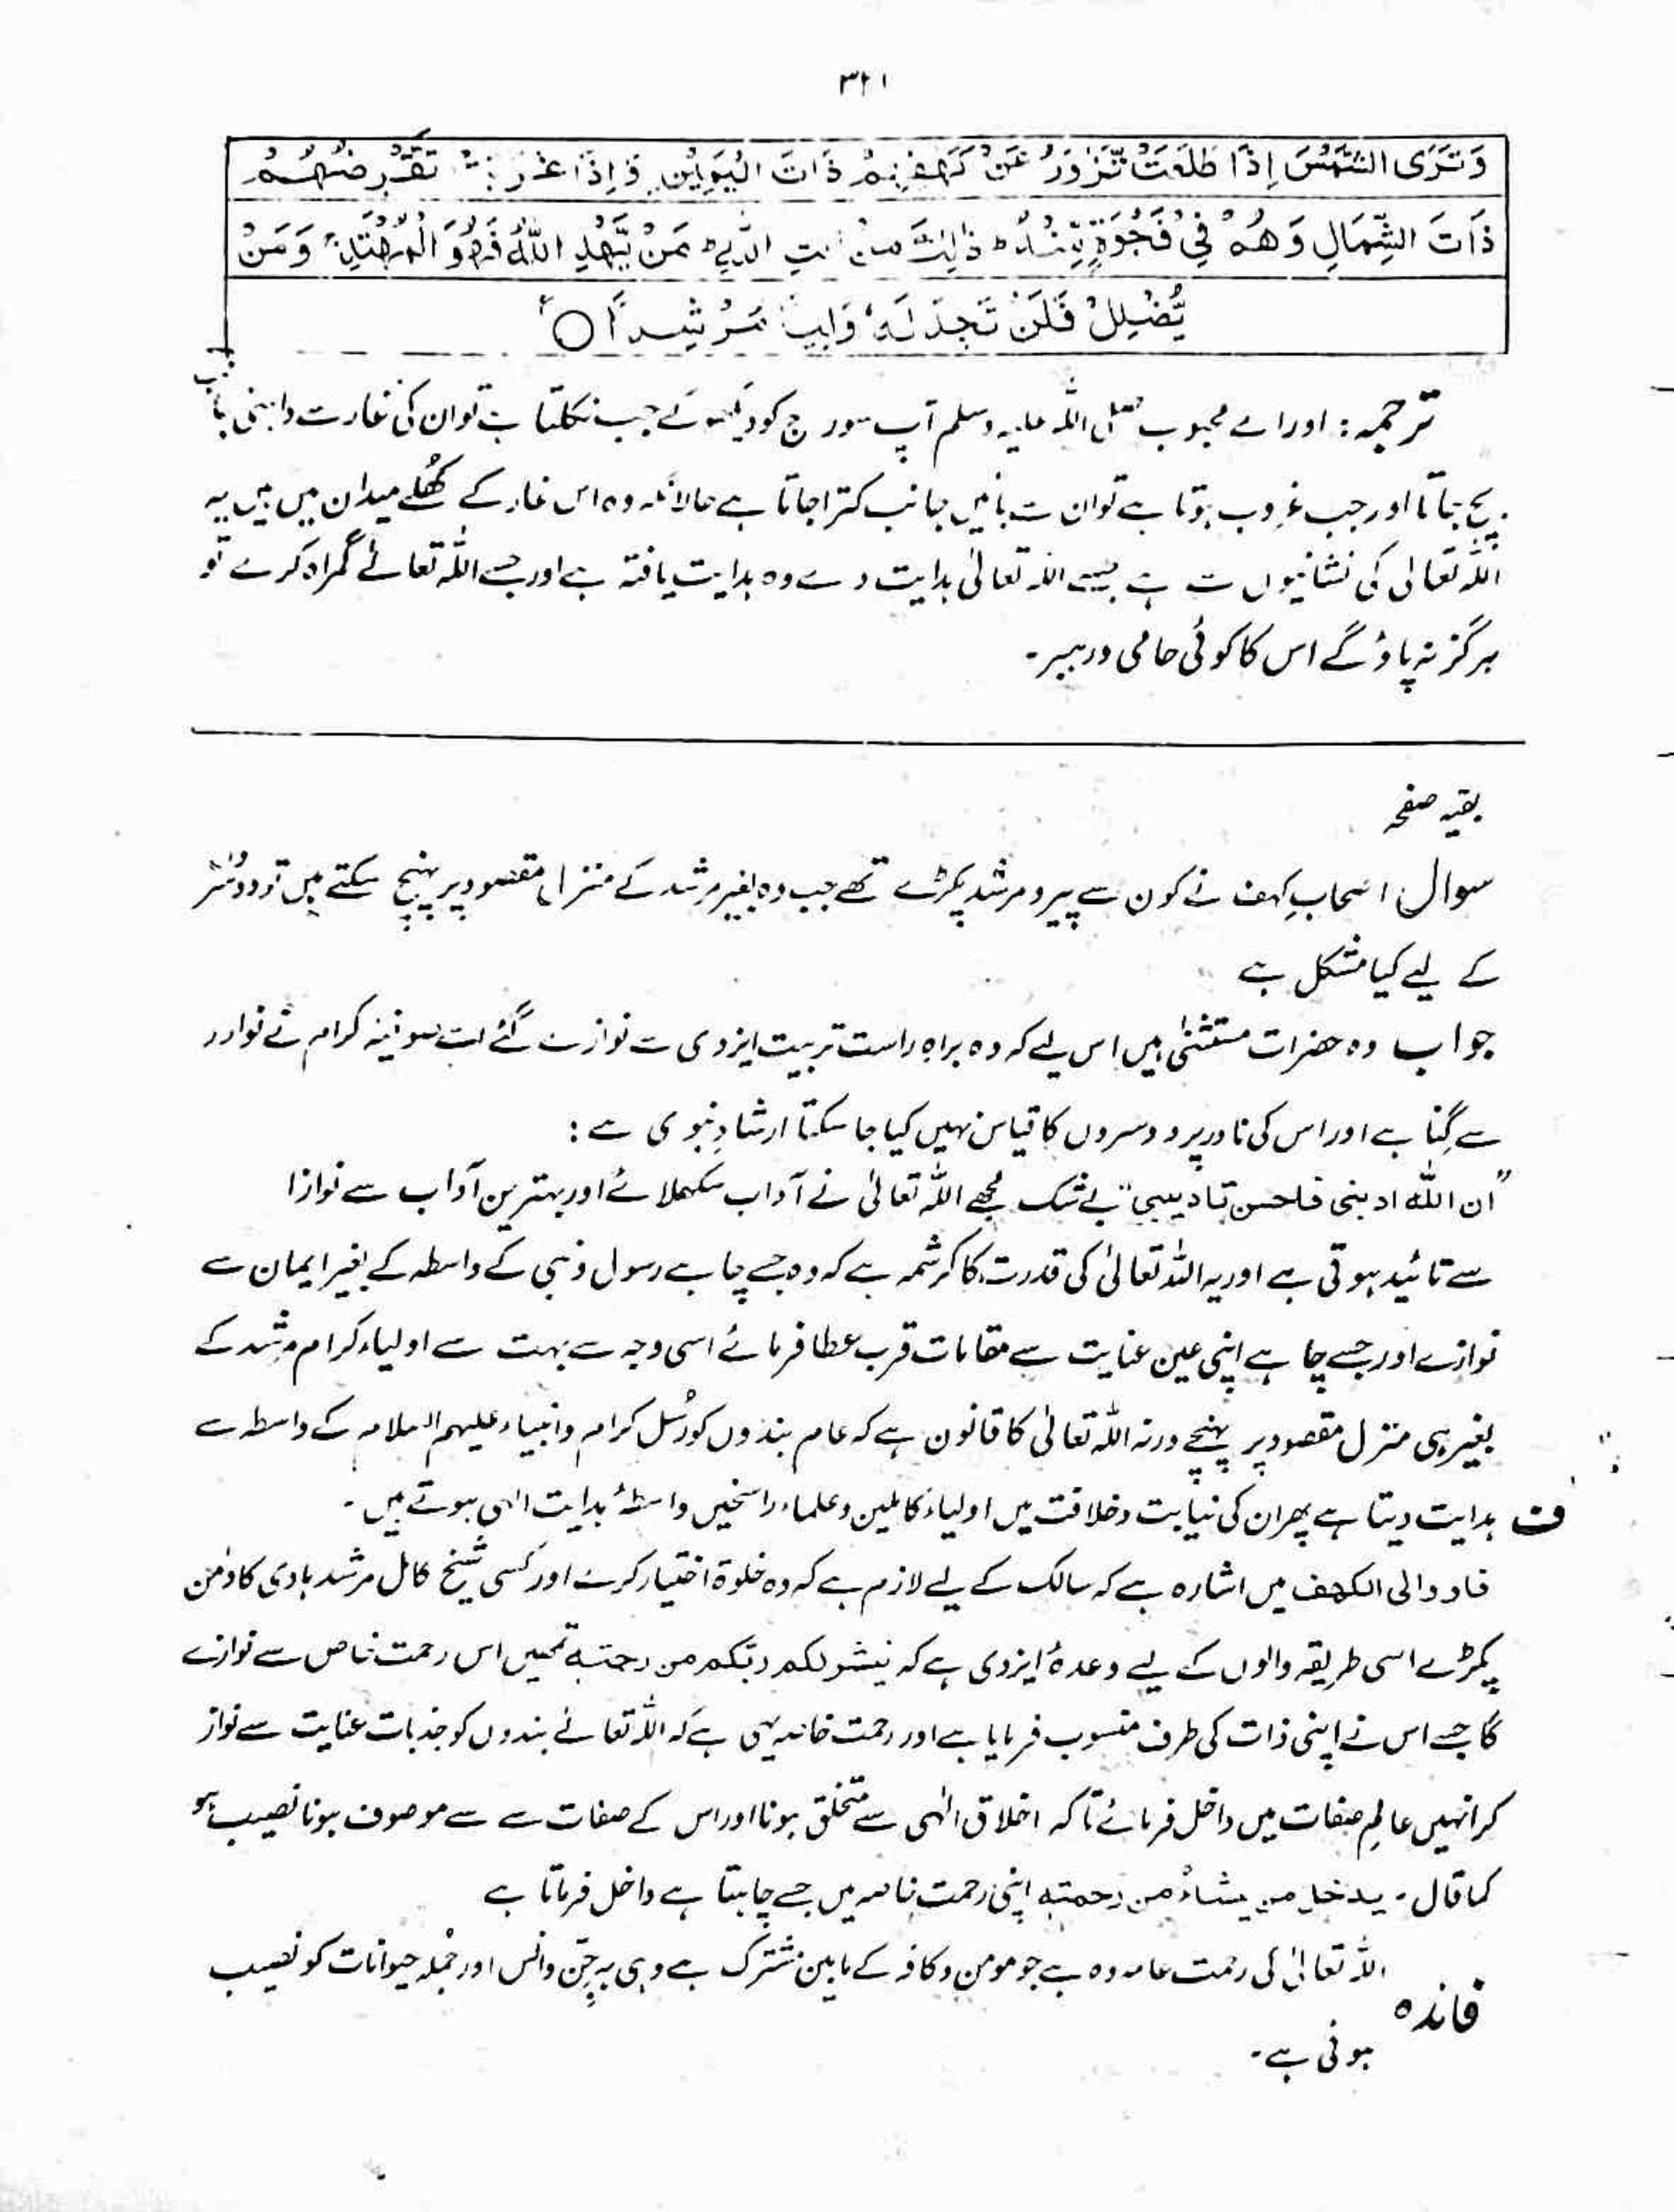 ۳۲۱
وَتَرَى الشَّمْسَ إِذَا طَلَعَتْ تَّزٰوَرُ عَنْ كَهْفِهِمْ ذَاتَ الْيَمِيْنِ وَإِذَا غَرَبَتْ تَقْرِضُهُمْ
ذَاتَ الشِّمَالِ وَهُمْ فِيْ فَجْوَةٍ مِّنْهُ ط ذٰلِكَ مِنْ اٰيٰتِ اللّٰهِ ط مَنْ يَّهْدِ اللّٰهُ فَهُوَ الْمُهْتَدِ وَمَنْ
يُّضْلِلْ فَلَنْ تَجِدَ لَهٗ وَلِيًّا مُّرْشِدًا ○
ترجمہ: اور اے محبوب صلی اللہ علیہ وسلم آپ سورج کو دیکھو گے جب نکلتا ہے تو ان کی غار سے داہنی جانب
بچ جاتا اور جب غروب ہوتا ہے تو ان سے بائیں جانب کترا جاتا ہے حالانکہ وہ اس غار کے کھُلے میدان میں ہیں یہ
اللہ تعالی کی نشانیوں سے ہے جسے اللہ تعالیٰ ہدایت دے وہ ہدایت یافتہ ہے اور جسے اللہ تعالےٰ گمراہ کرے تو
ہرگز نہ پاؤ گے اس کا کوئی حامی و رہبر۔
بقیہ صفحہ
سوال اصحابِ کہف نے کون سے پیر و مرشد پکڑے تھے جب وہ بغیر مرشد کے منزل مقصود پر پہنچ سکتے ہیں تو دوسروں
کے لیے کیا مشکل ہے
جواب وہ حضرات مستثنٰی ہیں اس لیے کہ وہ براہِ راست تربیت ایزدی سے نوازے گئے اسے صوفیہ کرام نے نوادر
سے گِنا ہے اور اس کی نادر پر دوسروں کا قیاس نہیں کیا جا سکتا ارشادِ نبوی ہے:
”ان اللہ ادبنی فاحسن تادیبی“ بے شک مجھے اللہ تعالیٰ نے آداب سکھلائے اور بہترین آداب سے نوازا
سے تائید ہوتی ہے اور یہ اللہ تعالیٰ کی قدرت کا کرشمہ ہے کہ وہ جسے چاہے رسول و نبی کے واسطہ کے بغیر ایمان سے
نوازے اور جسے چاہے اپنی عین عنایت سے مقامات قرب عطا فرمائے اسی وجہ سے بہت سے اولیاء کرام مرشد کے
بغیر ہی منزل مقصود پر پہنچے ورنہ اللہ تعالیٰ کا قانون ہے کہ عام بندوں کو رُسل کرام و انبیاء علیہم السلام کے واسطہ سے
ف ہدایت دیتا ہے پھر ان کی نیابت و خلافت میں اولیاء کاملین و علماء راسخین واسطۂ ہدایت الٰہی ہوتے ہیں۔
فاووا الی الکھف میں اشارہ ہے کہ سالک کے لیے لازم ہے کہ وہ خلوۃ اختیار کرے اور کسی شیخ کامل مرشد ہادی کا دامن
پکڑے اسی طریقہ والوں کے لیے وعدۂ ایزدی ہے کہ ینشر لکم ربکم من رحمتہ تمہیں اس رحمت خاص سے نوازے
گا جسے اس نے اپنی ذات کی طرف منسوب فرمایا ہے اور رحمت خاصہ یہی ہے کہ اللہ تعالے بندوں کو جذبات عنایت سے نواز
کر انہیں عالمِ صفات میں داخل فرمائے تاکہ اخلاق الٰہی سے متخلق ہونا اور اس کے صفات سے سے موصوف ہونا نصیب ہو
کما قال۔ یدخل من یشاء من رحمتہ اپنی رحمت خاصہ میں جسے چاہتا ہے داخل فرماتا ہے
فائدہ اللہ تعالیٰ کی رحمت عامہ وہ ہے جو مومن و کافر کے مابین مشترک ہے وہی ہر جِنّ و انس اور جُملہ حیوانات کو نصیب
ہوئی ہے۔